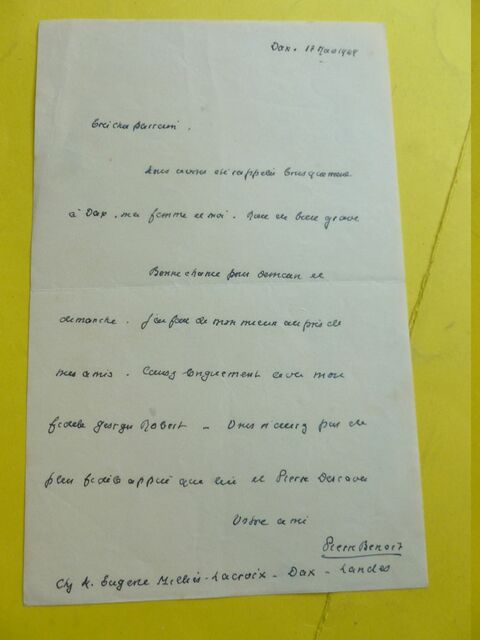 Dax. 17 Mai 1948
Très cher parrain,
Nous avons été rappelés brusquement
à Dax, ma femme et moi. Rien de bien grave
Bonne chance pour demain et
dimanche. J'ai fait de mon mieux auprès de
mes amis. Causez longuement avec mon
fidèle Georges Robert - Vous n'aurez pas de
plus fidèle appui que lui et Pierre
Votre ami
Pierre Benoit
Chz M. Eugène Milliès-Lacroix - Dax - Landes